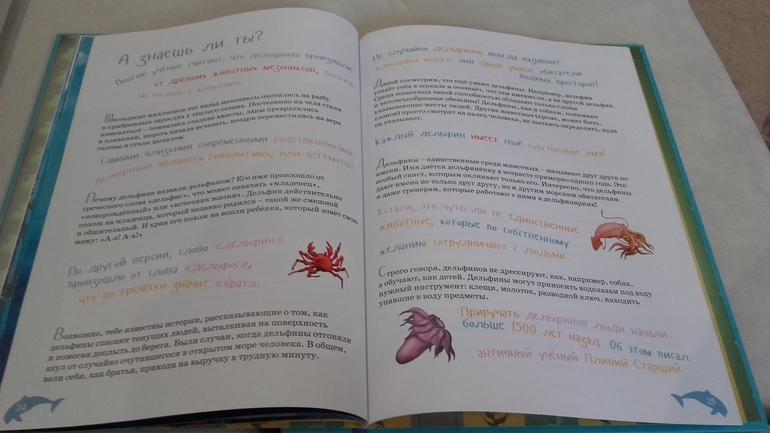 А знаешь ли ты?
Многие учёные считают, что дельфины произошли
от древних животных мезониксов, похожих
на волков с копытами.
Шестьдесят миллионов лет назад мезониксы охотились на рыбу
в прибрежных зарослях у тёплого океана. Постепенно их тела стали
изменяться – появились гладкие хвосты, лапы превратились
в плавники, шерсть начала исчезать, ноздри переместились на верх
головы и стали дыхалом.
Самыми близкими современными родственниками
дельфинов являются гиппопотамы, или бегемоты.
Почему дельфина назвали дельфином? Его имя произошло от
греческого слова «дельфис», что может означать «младенец»,
«новорождённый» или «источник жизни». Дельфин действительно
похож на младенца, который недавно родился – такой же смешной
и общительный. И крик его похож на вопли ребёнка, который зовёт свою
маму: «А-а! А-а!»
По другой версии, слово «дельфин»
произошло от слова «дельфос»,
что по-гречески значит «брат».
Возможно, тебе известны истории, рассказывающие о том, как
дельфины спасают тонущих людей, выталкивая на поверхность
и помогая доплыть до берега. Были случаи, когда дельфины отгоняли
акул от случайно очутившегося в открытом море человека. В общем,
вели себя, как братья, приходя на выручку в трудную минуту.
24
Не случайно дельфинов иногда называют
«людьми моря»: они самые умные обитатели
водных просторов!
Давай посмотрим, что ещё умеют дельфины. Например, дельфин
узнаёт себя в зеркале и осознаёт, что там именно он, а не другой дельфин.
Среди животных такой способностью обладают только слоны
и человекообразные обезьяны! Дельфины, как и собаки, понимают
указательные жесты людей. Другие животные (кроме, может быть,
слонов) просто смотрят на палец человека, не пытаясь определить, куда
он указывает.
Каждый дельфин имеет своё собственное имя!
Дельфины – единственные среди животных – называют друг друга по
имени. Имя даётся дельфинёнку в возрасте примерно одного года. Это
особый свист, которым окликают только его. Интересно, что дельфины
дают имена не только друг другу, но и другим морским обитателям
и даже тренерам, которые работают с ними в дельфинариях!
Кстати, это чуть ли не единственные
животные, которые по собственному
желанию сотрудничают с людьми.
Строго говоря, дельфинов не дрессируют, как, например, собак,
а обучают, как детей. Дельфины могут приносить водолазам под воду
нужный инструмент: клещи, молоток, разводной ключ, находить
упавшие в воду предметы.
Приручать дельфинов люди начали
больше 1500 лет назад. Об этом писал
античный учёный Плиний Старший.
25